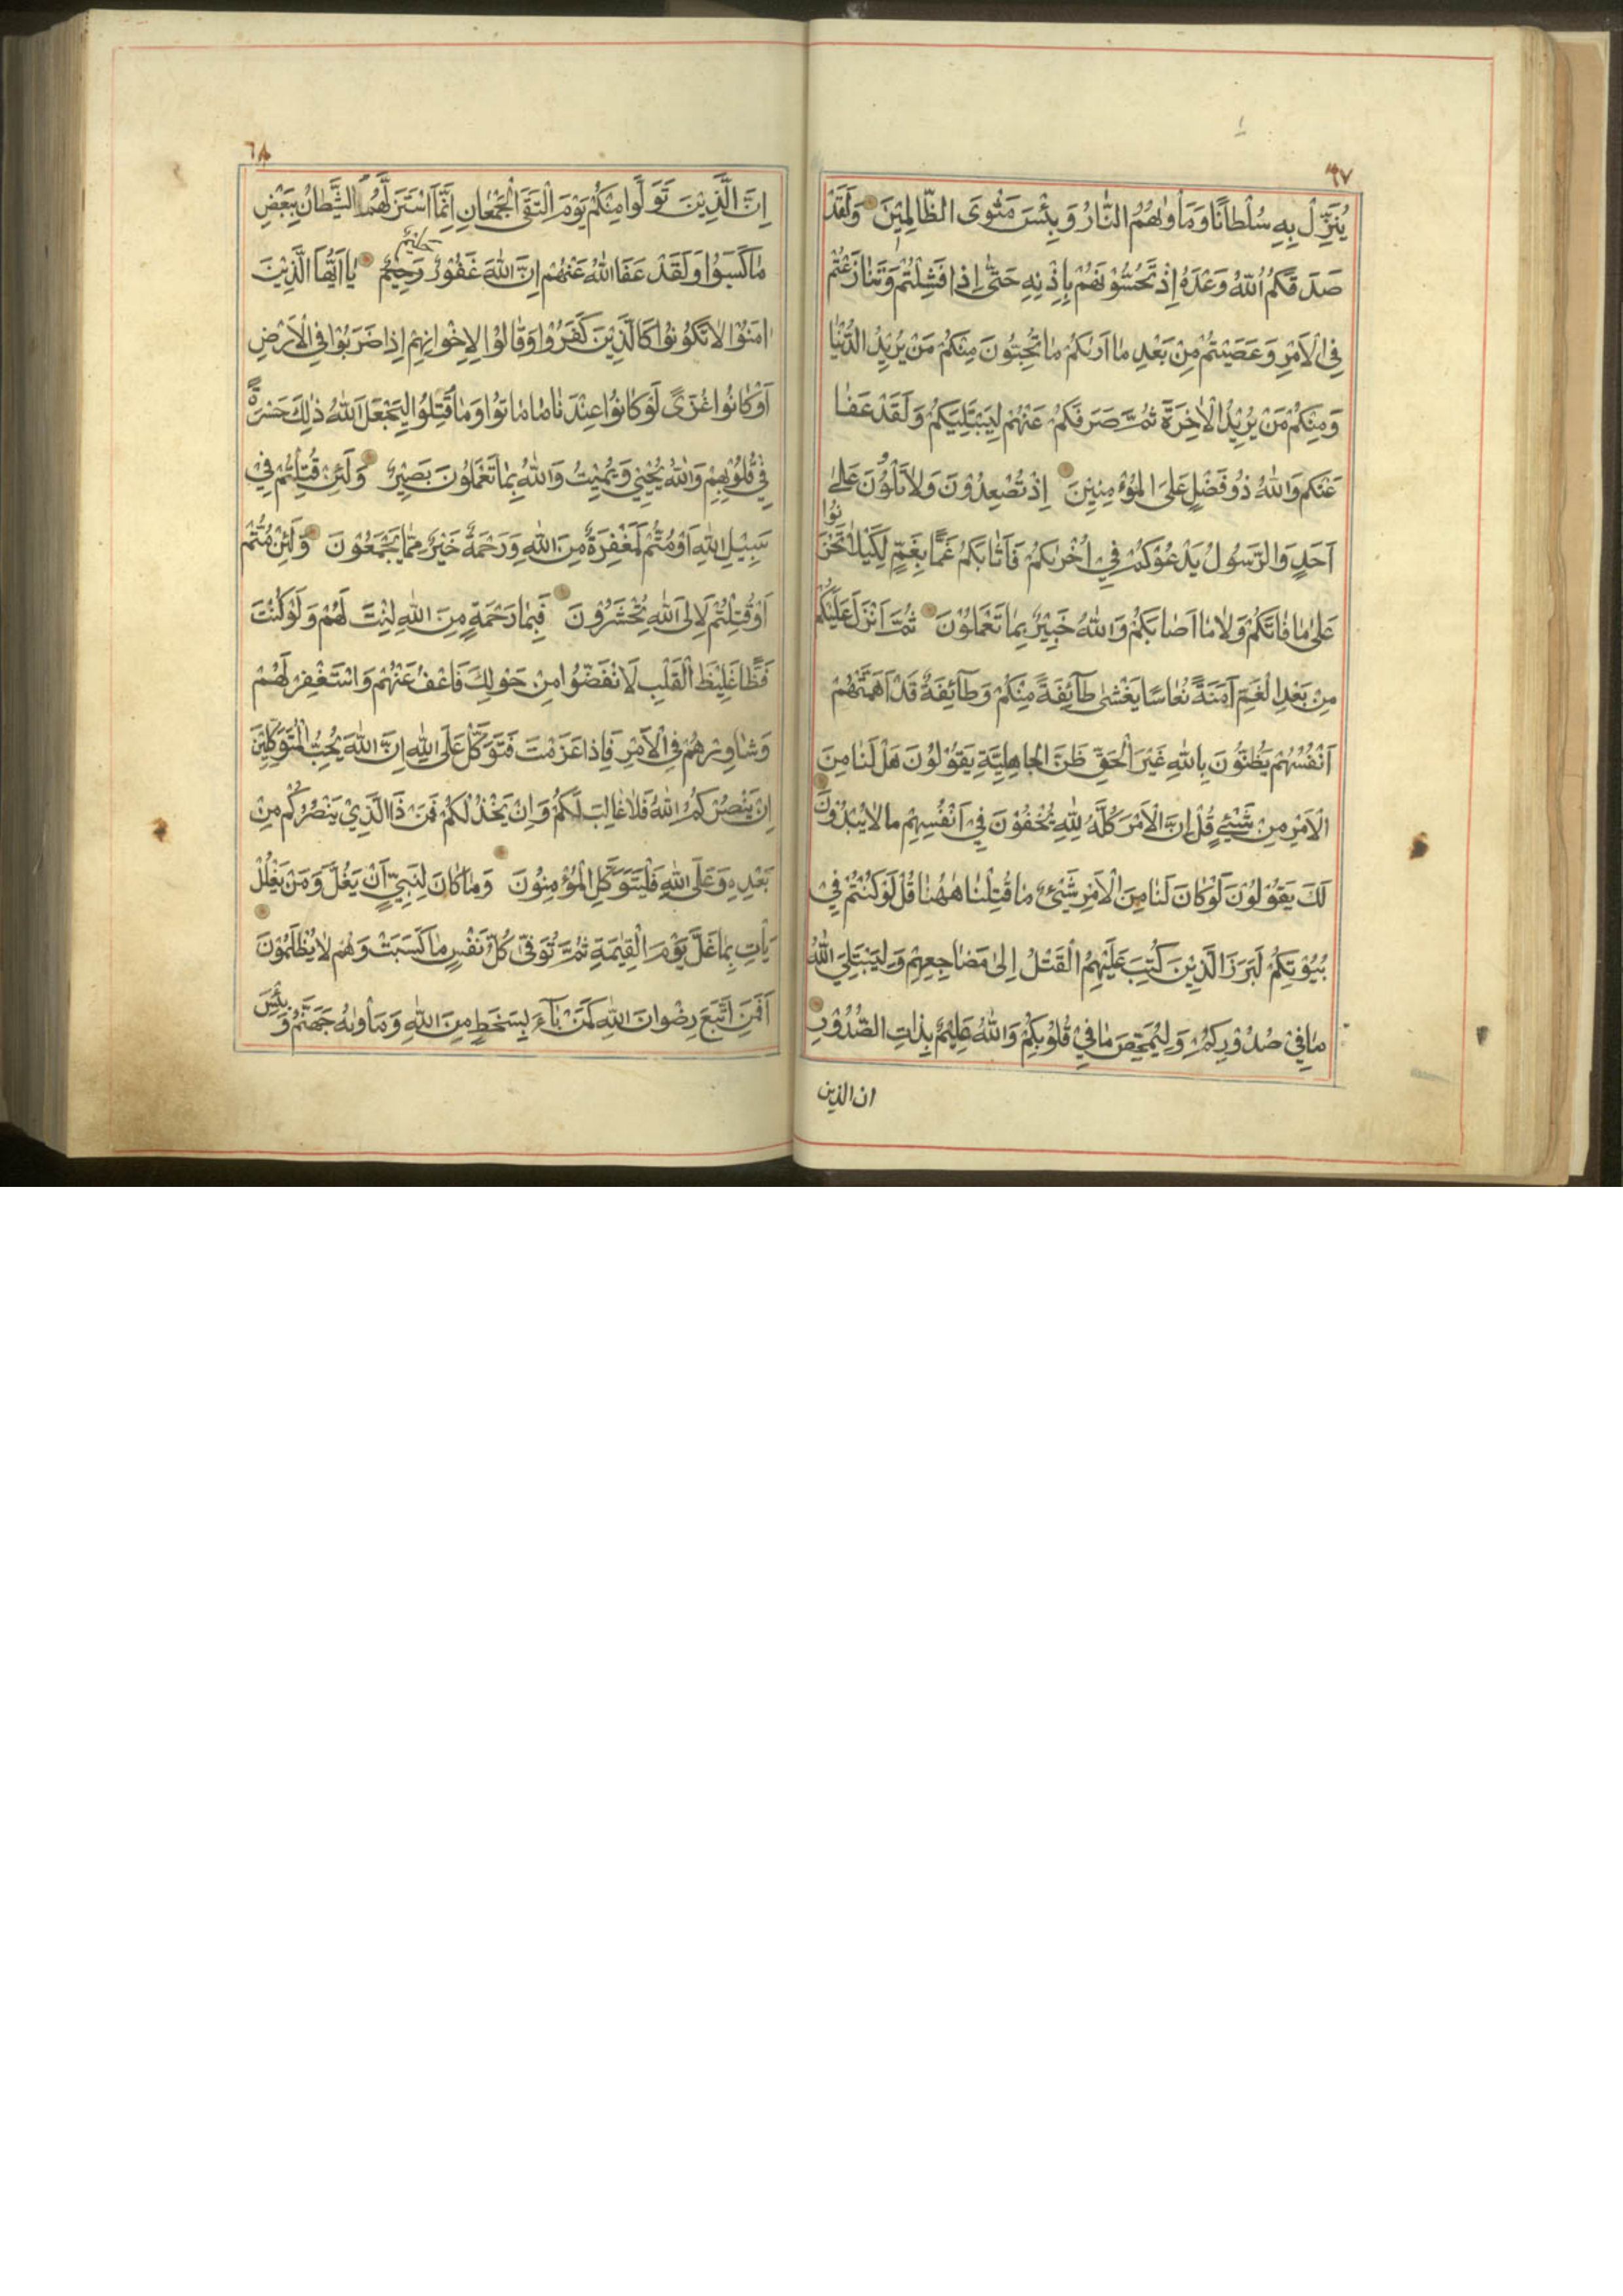 ٦٧
يُنَزِّلْ بِهِ سُلْطَانًا وَمَأْوٰىهُمُ النَّارُ وَبِئْسَ مَثْوَى الظَّالِمِيْنَ وَلَقَدْ
صَدَقَكُمُ اللّٰهُ وَعْدَهُ إِذْ تَحُسُّوْنَهُمْ بِإِذْنِهِ حَتّٰى إِذَا فَشِلْتُمْ وَتَنَازَعْتُمْ
فِي الْأَمْرِ وَعَصَيْتُمْ مِنْ بَعْدِ مَا أَرٰىكُمْ مَا تُحِبُّونَ مِنْكُمْ مَنْ يُرِيْدُ الدُّنْيَا
وَمِنْكُمْ مَنْ يُرِيْدُ الْاٰخِرَةَ ثُمَّ صَرَفَكُمْ عَنْهُمْ لِيَبْتَلِيَكُمْ وَلَقَدْ عَفَا
عَنْكُمْ وَاللّٰهُ ذُو فَضْلٍ عَلَى الْمُؤْمِنِيْنَ إِذْ تُصْعِدُوْنَ وَلَا تَلْوُنَ عَلٰى
أَحَدٍ وَالرَّسُولُ يَدْعُوْكُمْ فِيْ أُخْرٰىكُمْ فَأَثَابَكُمْ غَمًّا بِغَمٍّ لِكَيْلَا تَحْزَنُوا
عَلٰى مَا فَاتَكُمْ وَلَا مَا أَصَابَكُمْ وَاللّٰهُ خَبِيْرٌ بِمَا تَعْمَلُوْنَ ثُمَّ أَنْزَلَ عَلَيْكُمْ
مِنْ بَعْدِ الْغَمِّ أَمَنَةً نُعَاسًا يَغْشٰى طَآئِفَةً مِنْكُمْ وَطَآئِفَةٌ قَدْ أَهَمَّتْهُمْ
أَنْفُسُهُمْ يَظُنُّوْنَ بِاللّٰهِ غَيْرَ الْحَقِّ ظَنَّ الْجَاهِلِيَّةِ يَقُوْلُوْنَ هَلْ لَنَا مِنَ
الْأَمْرِ مِنْ شَيْءٍ قُلْ إِنَّ الْأَمْرَ كُلَّهُ لِلّٰهِ يُخْفُوْنَ فِيْ أَنْفُسِهِمْ مَا لَا يُبْدُوْنَ
لَكَ يَقُوْلُوْنَ لَوْ كَانَ لَنَا مِنَ الْأَمْرِ شَيْءٌ مَا قُتِلْنَا هٰهُنَا قُلْ لَوْ كُنْتُمْ فِيْ
بُيُوْتِكُمْ لَبَرَزَ الَّذِيْنَ كُتِبَ عَلَيْهِمُ الْقَتْلُ إِلٰى مَضَاجِعِهِمْ وَلِيَبْتَلِيَ اللّٰهُ
مَا فِيْ صُدُوْرِكُمْ وَلِيُمَحِّصَ مَا فِيْ قُلُوْبِكُمْ وَاللّٰهُ عَلِيْمٌ بِذَاتِ الصُّدُوْرِ
ان الذين
٦٨
إِنَّ الَّذِيْنَ تَوَلَّوْا مِنْكُمْ يَوْمَ الْتَقَى الْجَمْعَانِ إِنَّمَا اسْتَزَلَّهُمُ الشَّيْطَانُ بِبَعْضِ
مَا كَسَبُوْا وَلَقَدْ عَفَا اللّٰهُ عَنْهُمْ إِنَّ اللّٰهَ غَفُوْرٌ رَحِيْمٌ يَا أَيُّهَا الَّذِيْنَ
حَلِيْمٌ
اٰمَنُوْا لَا تَكُوْنُوْا كَالَّذِيْنَ كَفَرُوْا وَقَالُوْا لِإِخْوَانِهِمْ إِذَا ضَرَبُوْا فِي الْأَرْضِ
أَوْ كَانُوْا غُزًّى لَوْ كَانُوْا عِنْدَنَا مَا مَاتُوْا وَمَا قُتِلُوْا لِيَجْعَلَ اللّٰهُ ذٰلِكَ حَسْرَةً
فِيْ قُلُوْبِهِمْ وَاللّٰهُ يُحْيِيْ وَيُمِيْتُ وَاللّٰهُ بِمَا تَعْمَلُوْنَ بَصِيْرٌ وَلَئِنْ قُتِلْتُمْ فِيْ
سَبِيْلِ اللّٰهِ أَوْ مُتُّمْ لَمَغْفِرَةٌ مِنَ اللّٰهِ وَرَحْمَةٌ خَيْرٌ مِمَّا يَجْمَعُوْنَ وَلَئِنْ مُتُّمْ
أَوْ قُتِلْتُمْ لَإِلَى اللّٰهِ تُحْشَرُوْنَ فَبِمَا رَحْمَةٍ مِنَ اللّٰهِ لِنْتَ لَهُمْ وَلَوْ كُنْتَ
فَظًّا غَلِيْظَ الْقَلْبِ لَانْفَضُّوْا مِنْ حَوْلِكَ فَاعْفُ عَنْهُمْ وَاسْتَغْفِرْ لَهُمْ
وَشَاوِرْهُمْ فِي الْأَمْرِ فَإِذَا عَزَمْتَ فَتَوَكَّلْ عَلَى اللّٰهِ إِنَّ اللّٰهَ يُحِبُّ الْمُتَوَكِّلِيْنَ
إِنْ يَنْصُرْكُمُ اللّٰهُ فَلَا غَالِبَ لَكُمْ وَإِنْ يَخْذُلْكُمْ فَمَنْ ذَا الَّذِيْ يَنْصُرُكُمْ مِنْ
بَعْدِهِ وَعَلَى اللّٰهِ فَلْيَتَوَكَّلِ الْمُؤْمِنُوْنَ وَمَا كَانَ لِنَبِيٍّ أَنْ يَغُلَّ وَمَنْ يَغْلُلْ
يَأْتِ بِمَا غَلَّ يَوْمَ الْقِيٰمَةِ ثُمَّ تُوَفّٰى كُلُّ نَفْسٍ مَا كَسَبَتْ وَهُمْ لَا يُظْلَمُوْنَ
أَفَمَنِ اتَّبَعَ رِضْوَانَ اللّٰهِ كَمَنْ بَآءَ بِسَخَطٍ مِنَ اللّٰهِ وَمَأْوٰىهُ جَهَنَّمُ وَبِئْسَ